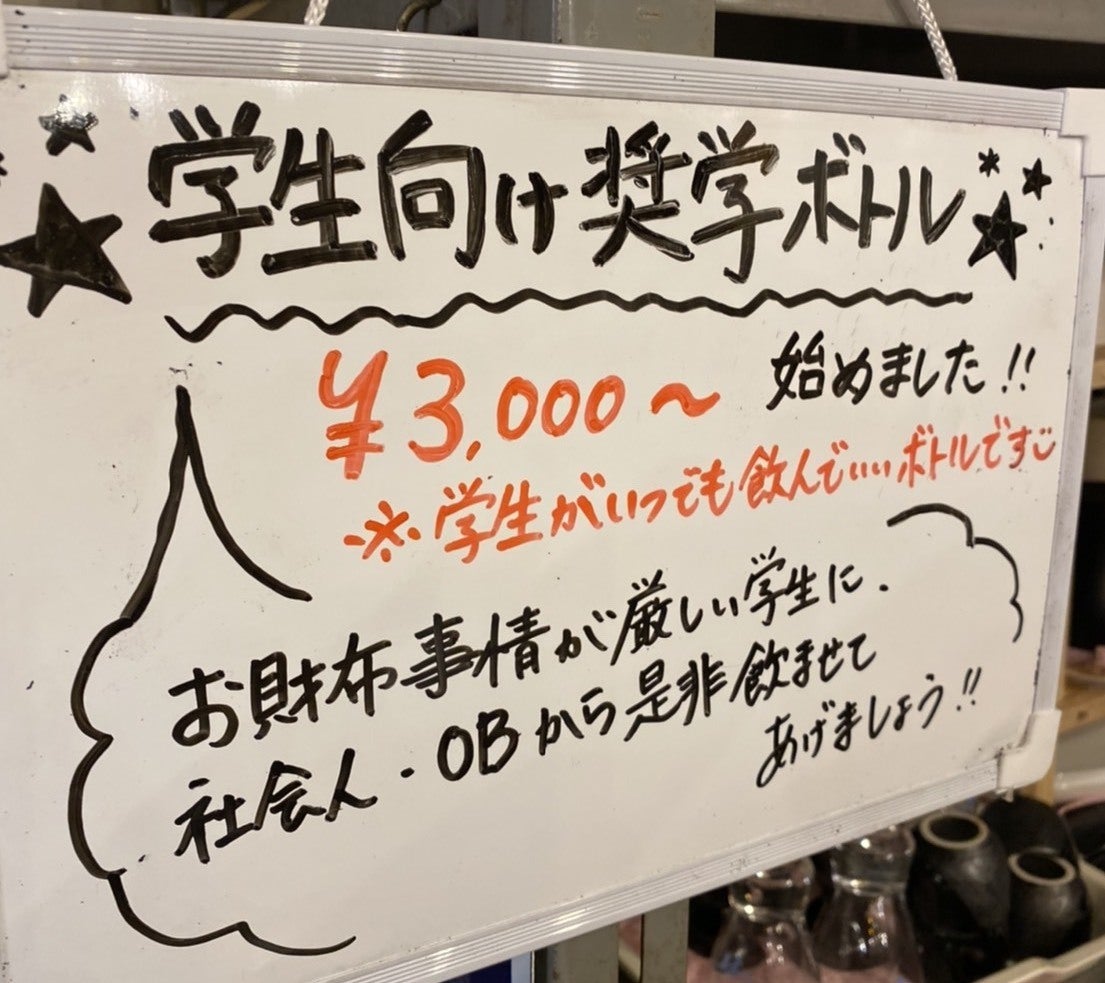 学生向け奨学ボトル
¥3,000〜 始めました!!
※学生がいつでも飲んでいいボトルです
お財布事情が厳しい学生に、
社会人・OBから是非飲ませて
あげましょう!!